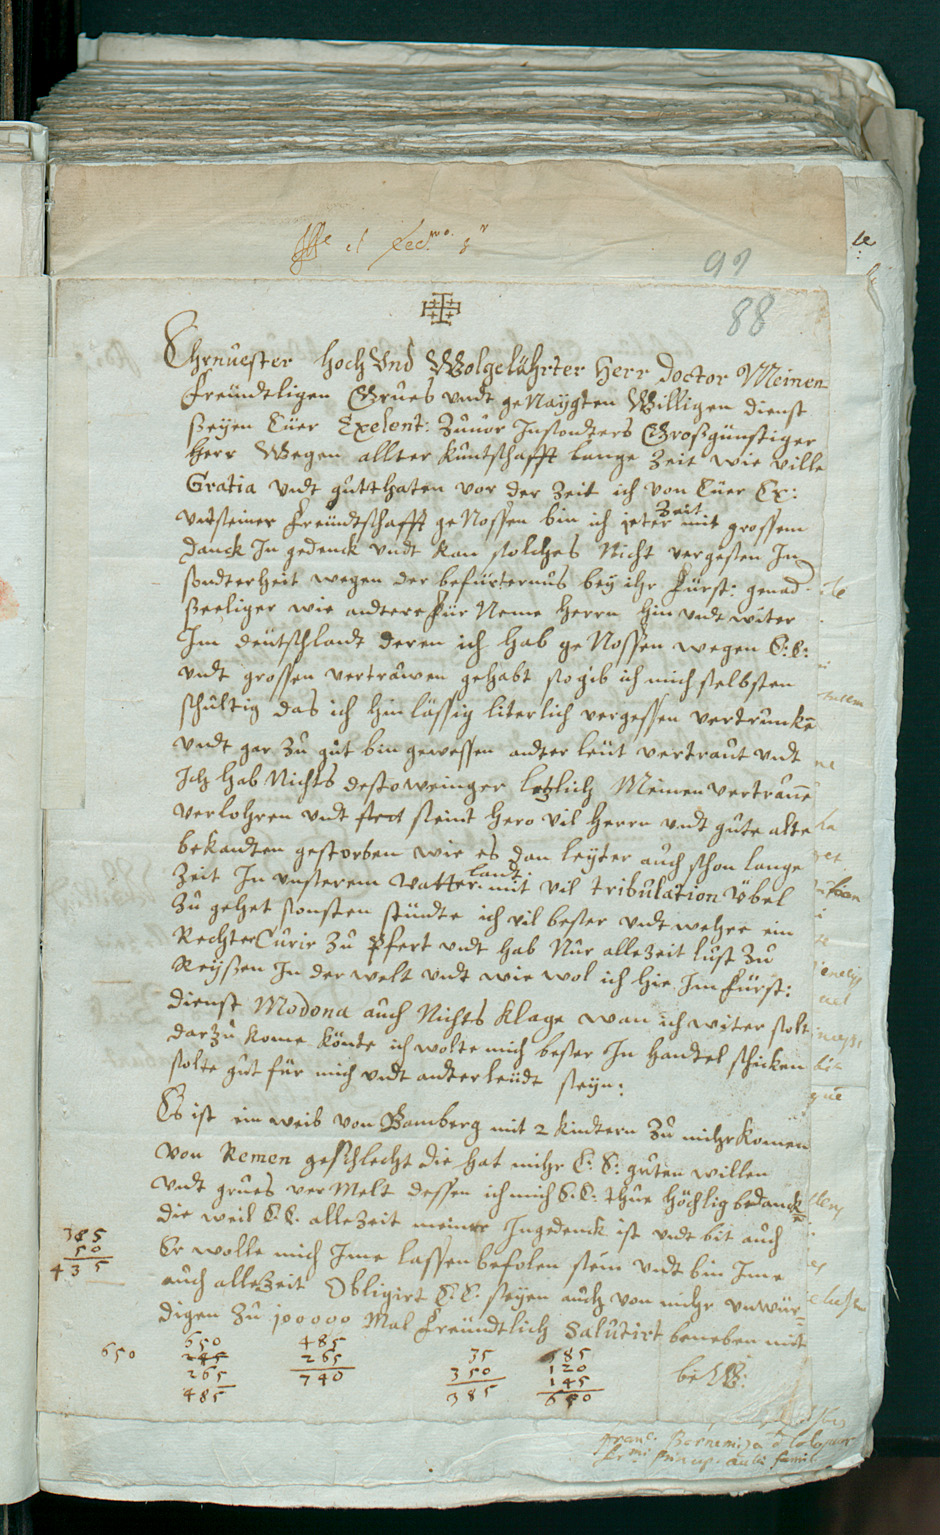 97
88
Ehrnuester Hoch Vnd Wolgelährter Herr Doctor Meinen
freündtligen Grues vndt geNaÿgten Willigen dienst
seÿen Euer Exelent: Zuuor Insondters Großgünstiger
Herr Wegen allter kuntschafft lange Zeit wie ville
Gratia vndt gutthaten vor der Zeit ich von Euer Ex:
vndt seiner freündtschafft geNossen bin ich jeter Zeit mit grossem
danck In gedenck vndt kan solches Nicht vergessen In
sondterheit wegen der befürternus beÿ ihr fürst: genad
seeliger wie andtere für Neme Herrn hin vndt witer
Im deütschlandt deren ich hab geNossen wegen E: E:
vndt grossen vertrawen gehabt so gib ich mich selbsten
schultig das ich hinlässig literlich vergessen vertrunckē
vndt gar Zu gut bin gewessen andter leüt vertraut vndt
Ich hab Nichts destoweinger letzlich Meinen vertrauē
verlohren vndt seint hero vil Herrn vndt gute alte
bekandten gestorben wie es dan leÿter auch schon lange
Zeit In vnsterem Vatterlandt mit vil tribulation Vöbel
Zu gehet sonsten stündte ich vil besser vndt wehre ein
Rechter Curir Zu Pfert vndt hab Nur alleZeit lust Zu
Reÿsen In der welt vndt wie wol ich hie Im fürst:
dienst Modona auch Nichts klage wan ich witer solt
darZu kome könte ich wolte mich besser In handtel schicken
solte gut für mich vndt andterleüdt seÿn:
Es ist ein weib von Bamberg mit 2 kindtern Zu mihr komen
von Remen geschlecht die hat mihr E: E: guten willen
vndt grues ver Melt dessen ich mich E: E: thue höchlig bedanckē
die weil E. E. alleZeit meiner Ingedenck ist vndt bit auch
Er wolle mich Ime lassen befolen sein vndt bin Ime
auch alleZeit Obligirt E. E. seÿen auch von mihr vnwür=
digen Zu 100000 Mal freündtlich Salutirt beneben mit
385
50
435
650
550
245
265
485
485
265
740
35
350
385
585
120
145
650